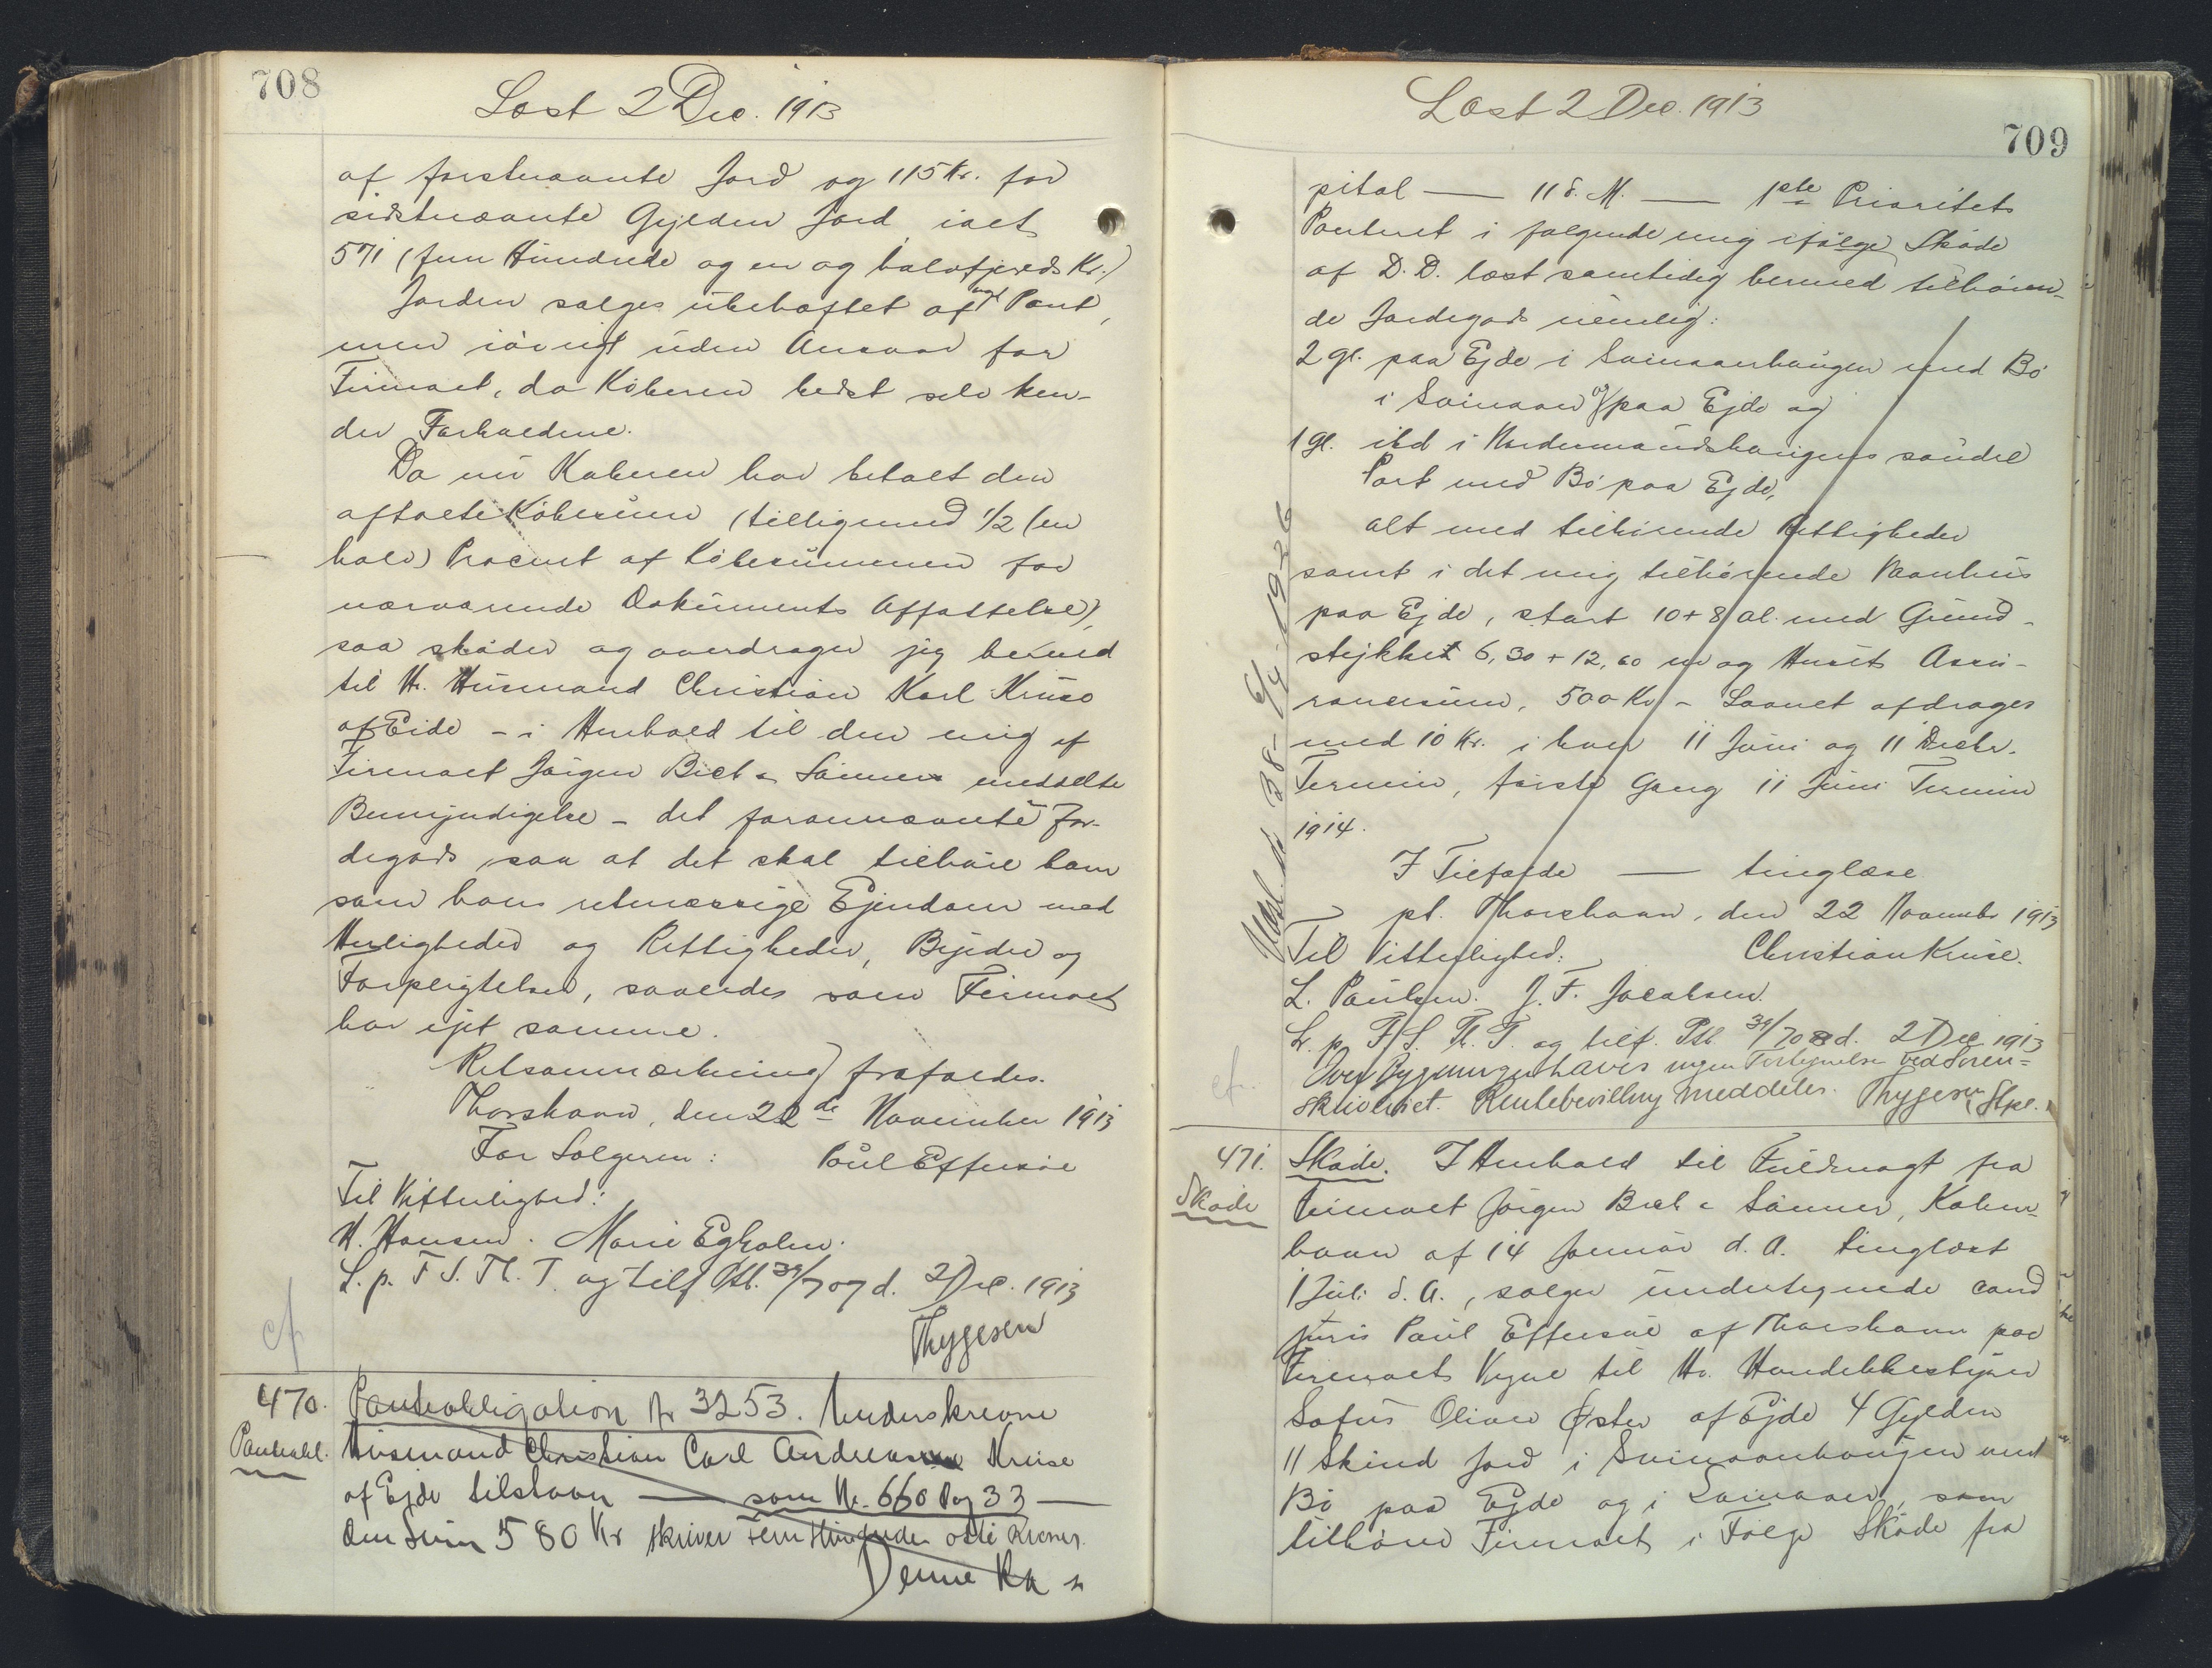 708
Læst 2 Dec. 1913
af førstnævnte Jord og 115 Kr. for
sidstnævnte Gylden Jord ialt
571 (fem Hundrede og en og halvfjerds Kr.)
Jorden sælges ubehæftet af Pant,
men iøvrigt uden Ansvar for
Firmaet, da Køberen bedst selv ken-
der Forholdene.
Da nu Køberen har betalt den
aftalte Købesum (tilligemed 1/2 (en
halv) Procent af Købesummen for
nærværende Dokuments Affattelse),
saa skøder og overdrager jeg herved
til Hr. Husmand Christian Karl Kruse
af Eide - i Henhold til den mig af
Firmaet Jørgen Bech & Sønner meddelte
Bemyndigelse - det forannævnte Jor-
degods, saa at det skal tilhøre ham
som hans retmæssige Ejendom med
Herligheder og Rettigheder, Byrder og
Forpligtelser, saaledes som Firmaet
har ejet samme.
Retsanmærkning frafaldes.
Thorshavn, den 22de November 1913
For Sælgeren: Poul Effersøe
Til Vitterlighed:
H. Hansen. Marie Egholm.
L. p. F. S. Th. T. og tilf. Ptb. 39/707 d. 2 Dec. 1913
Thygesen
cf
470. Panteobligation Nr 3253. Underskrevne
Panteobl. Husmand Christian Carl Andreas Kruse
af Ejde tilstaar — som Nr. 660 Pag 33 —
den Sum 580 Kr skriver Fem Hundrede otti Kroner.
Denne Ka
Læst 2 Dec. 1913
709
pital — 11 d. M. — 1ste Prioritets
Panteret i følgende mig ifølge Skøde
af D. D. læst samtidig hermed tilhøren-
de Jordegods nemlig:
2 gl. paa Ejde i Svinaaerhaugen med Bø
i Svinaaer og paa Ejde og
1 gl. ibd i Nordmandshaugens søndre
Part med Bø paa Ejde,
alt med tilhørende Rettigheder
samt i det mig tilhørende Vaanhus
paa Ejde, stort 10 + 8 al. med Grund-
stykket 6,30 + 12,60 m og Husets Assu-
rancesum, 500 Kr - Laanet afdrages
med 10 Kr. i hver 11 Juni og 11 Decbr.
Termin, første Gang 11 Juni Termin
1914.
I Tilfælde — tinglæse
pt. Thorshavn, den 22 November 1913
Til Vitterlighed: Christian Kruse.
L. Paulsen. J. F. Jacobsen.
L. p. F. S. Th. T. og tilf. Ptb. 39/708 d. 2 Dec 1913
Over Bygningen haves ingen Forhynelse ved Soren-
skriveriet. Rentebevilling meddeles. Thygesen
cf.
38-6/4-1926
471. Skøde. I Henhold til Fuldmagt fra
Skøde Firmaet Jørgen Bech & Sønner, Køben-
havn af 14 Januar d. A. tinglæst
1 Juli d. A., sælger undertegnede cand
juris Poul Effersøe af Thorshavn paa
Firmaets Vegne til Hr. Handelsbestyrer
Sofus Oliver Øster af Ejde 4 Gylden
11 Skind Jord i Svinaaerhaugen med
Bø paa Ejde og i Svinaaer, som
tilhører Firmaet i Følge Skøde fra